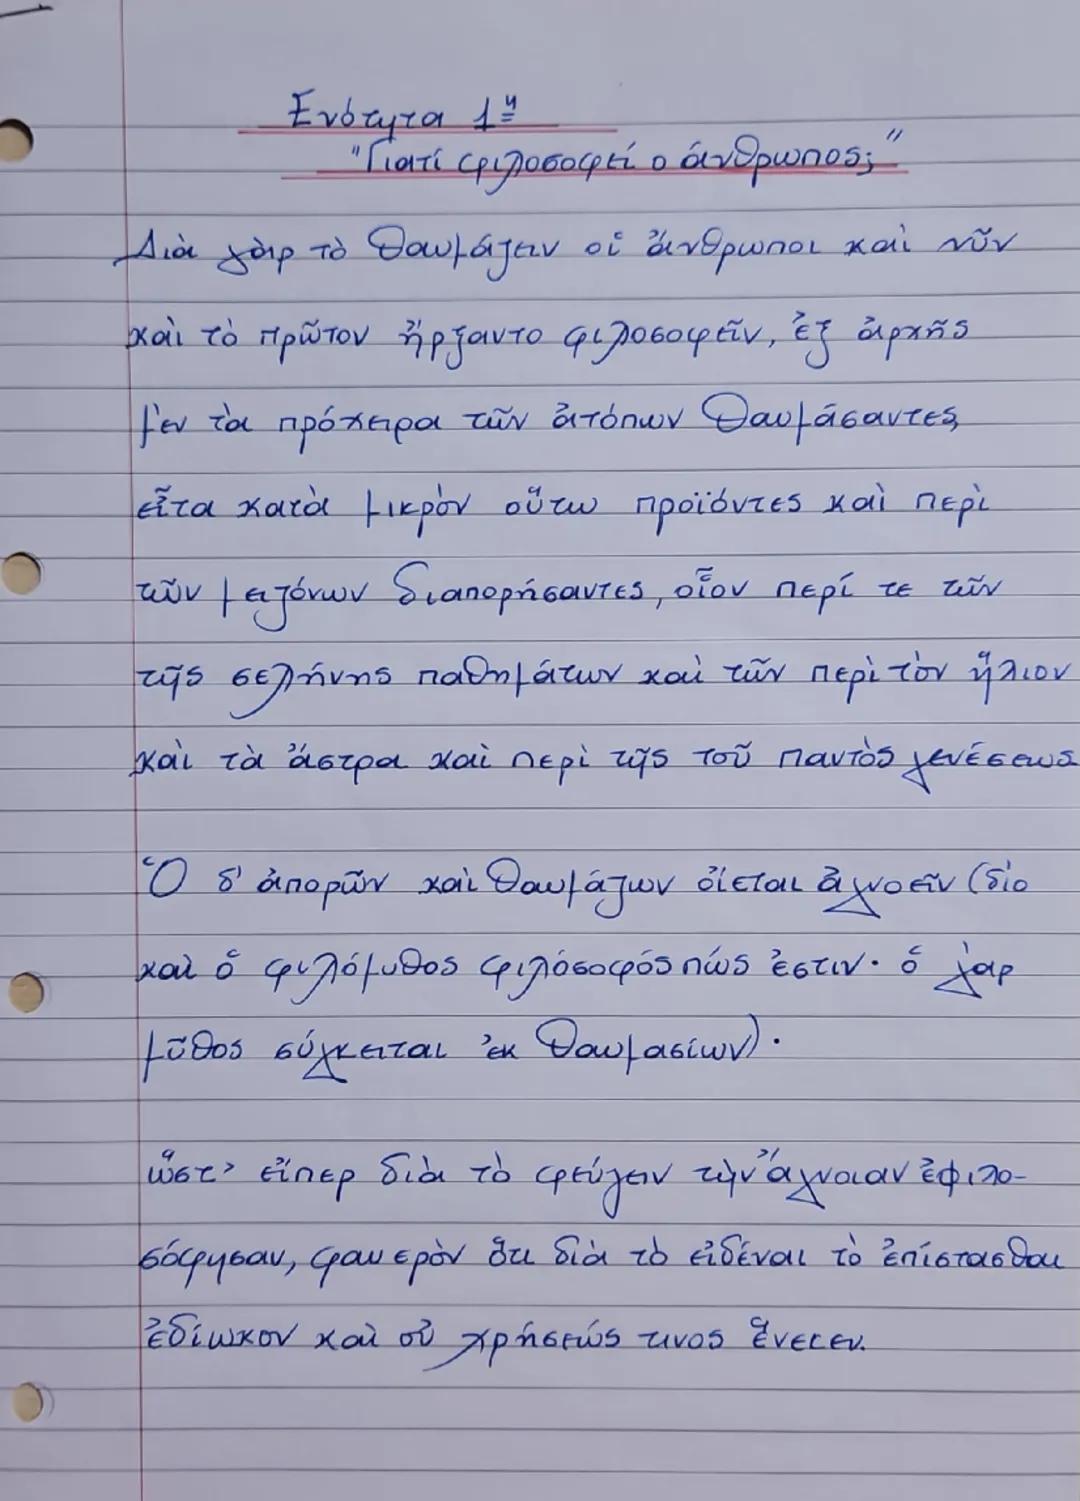 Ενότητα 1η
"Γιατί φιλοσοφεί ο άνθρωπος;"
Διὰ γὰρ τὸ θαυμάζειν οἱ ἄνθρωποι καὶ νῦν
καὶ τὸ πρῶτον ἤρξαντο φιλοσοφεῖν, ἐξ ἀρχῆς
μὲν τὰ πρόχειρα τῶν ἀτόπων θαυμάσαντες,
εἶτα κατὰ μικρὸν οὕτω προϊόντες καὶ περὶ
τῶν μειζόνων διαπορήσαντες, οἷον περί τε τῶν
τῆς σελήνης παθημάτων καὶ τῶν περὶ τὸν ἥλιον
καὶ τὰ ἄστρα καὶ περὶ τῆς τοῦ παντὸς γενέσεως
Ὁ δ' ἀπορῶν καὶ θαυμάζων οἴεται ἀγνοεῖν (διὸ
καὶ ὁ φιλόμυθος φιλόσοφός πώς ἐστιν· ὁ γὰρ
μῦθος σύγκειται ἐκ θαυμασίων)·
ὥστ' εἴπερ διὰ τὸ φεύγειν τὴν ἄγνοιαν ἐφιλο-
σόφησαν, φανερὸν ὅτι διὰ τὸ εἰδέναι τὸ ἐπίστασθαι
ἐδίωκον καὶ οὐ χρήσεώς τινος ἕνεκεν.